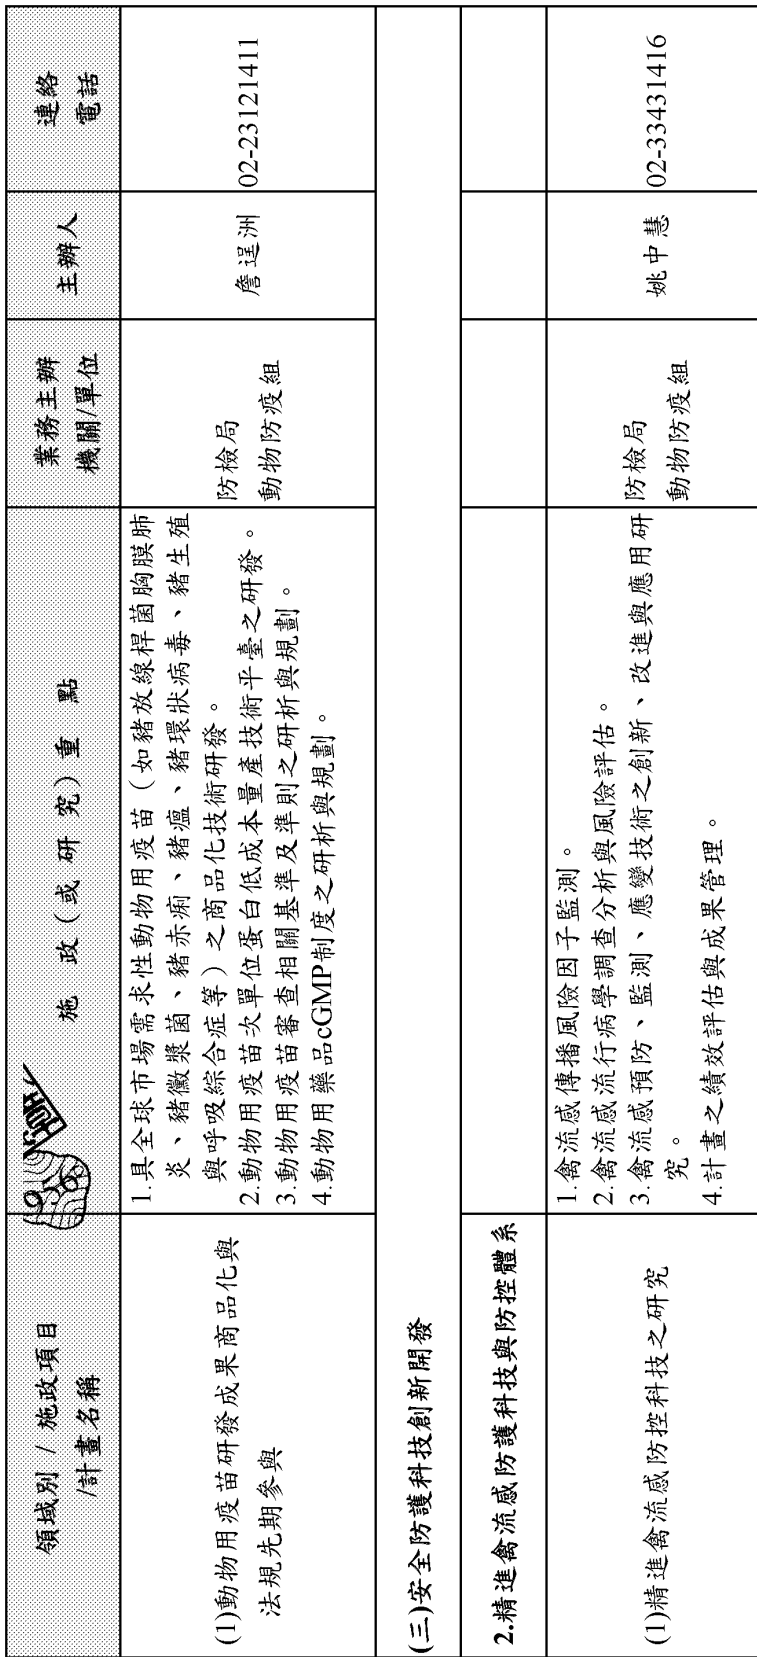 領域別 / 施政項目
/計畫名稱
施 政(或 研 究) 重 點
業務主辦
機關/單位
主辦人
連絡
電話
(1)動物用疫苗研發成果商品化與
法規先期參與
1.具全球市場需求性動物用疫苗（如豬放線桿菌胸膜肺
炎、豬黴漿菌、豬赤痢、豬瘟、豬環狀病毒、豬生殖
與呼吸綜合症等）之商品化技術研發。
2.動物用疫苗次單位蛋白低成本量產技術平臺之研發。
3.動物用疫苗審查相關基準及準則之研析與規劃。
4.動物用藥品cGMP制度之研析與規劃。
防檢局
動物防疫組
詹逞洲
02-23121411
(三)安全防護科技創新開發
2.精進禽流感防護科技與防控體系
(1)精進禽流感防控科技之研究
1.禽流感傳播風險因子監測。
2.禽流感流行病學調查分析與風險評估。
3.禽流感預防、監測、應變技術之創新、改進與應用研
究。
4.計畫之績效評估與成果管理。
防檢局
動物防疫組
姚中慧
02-33431416